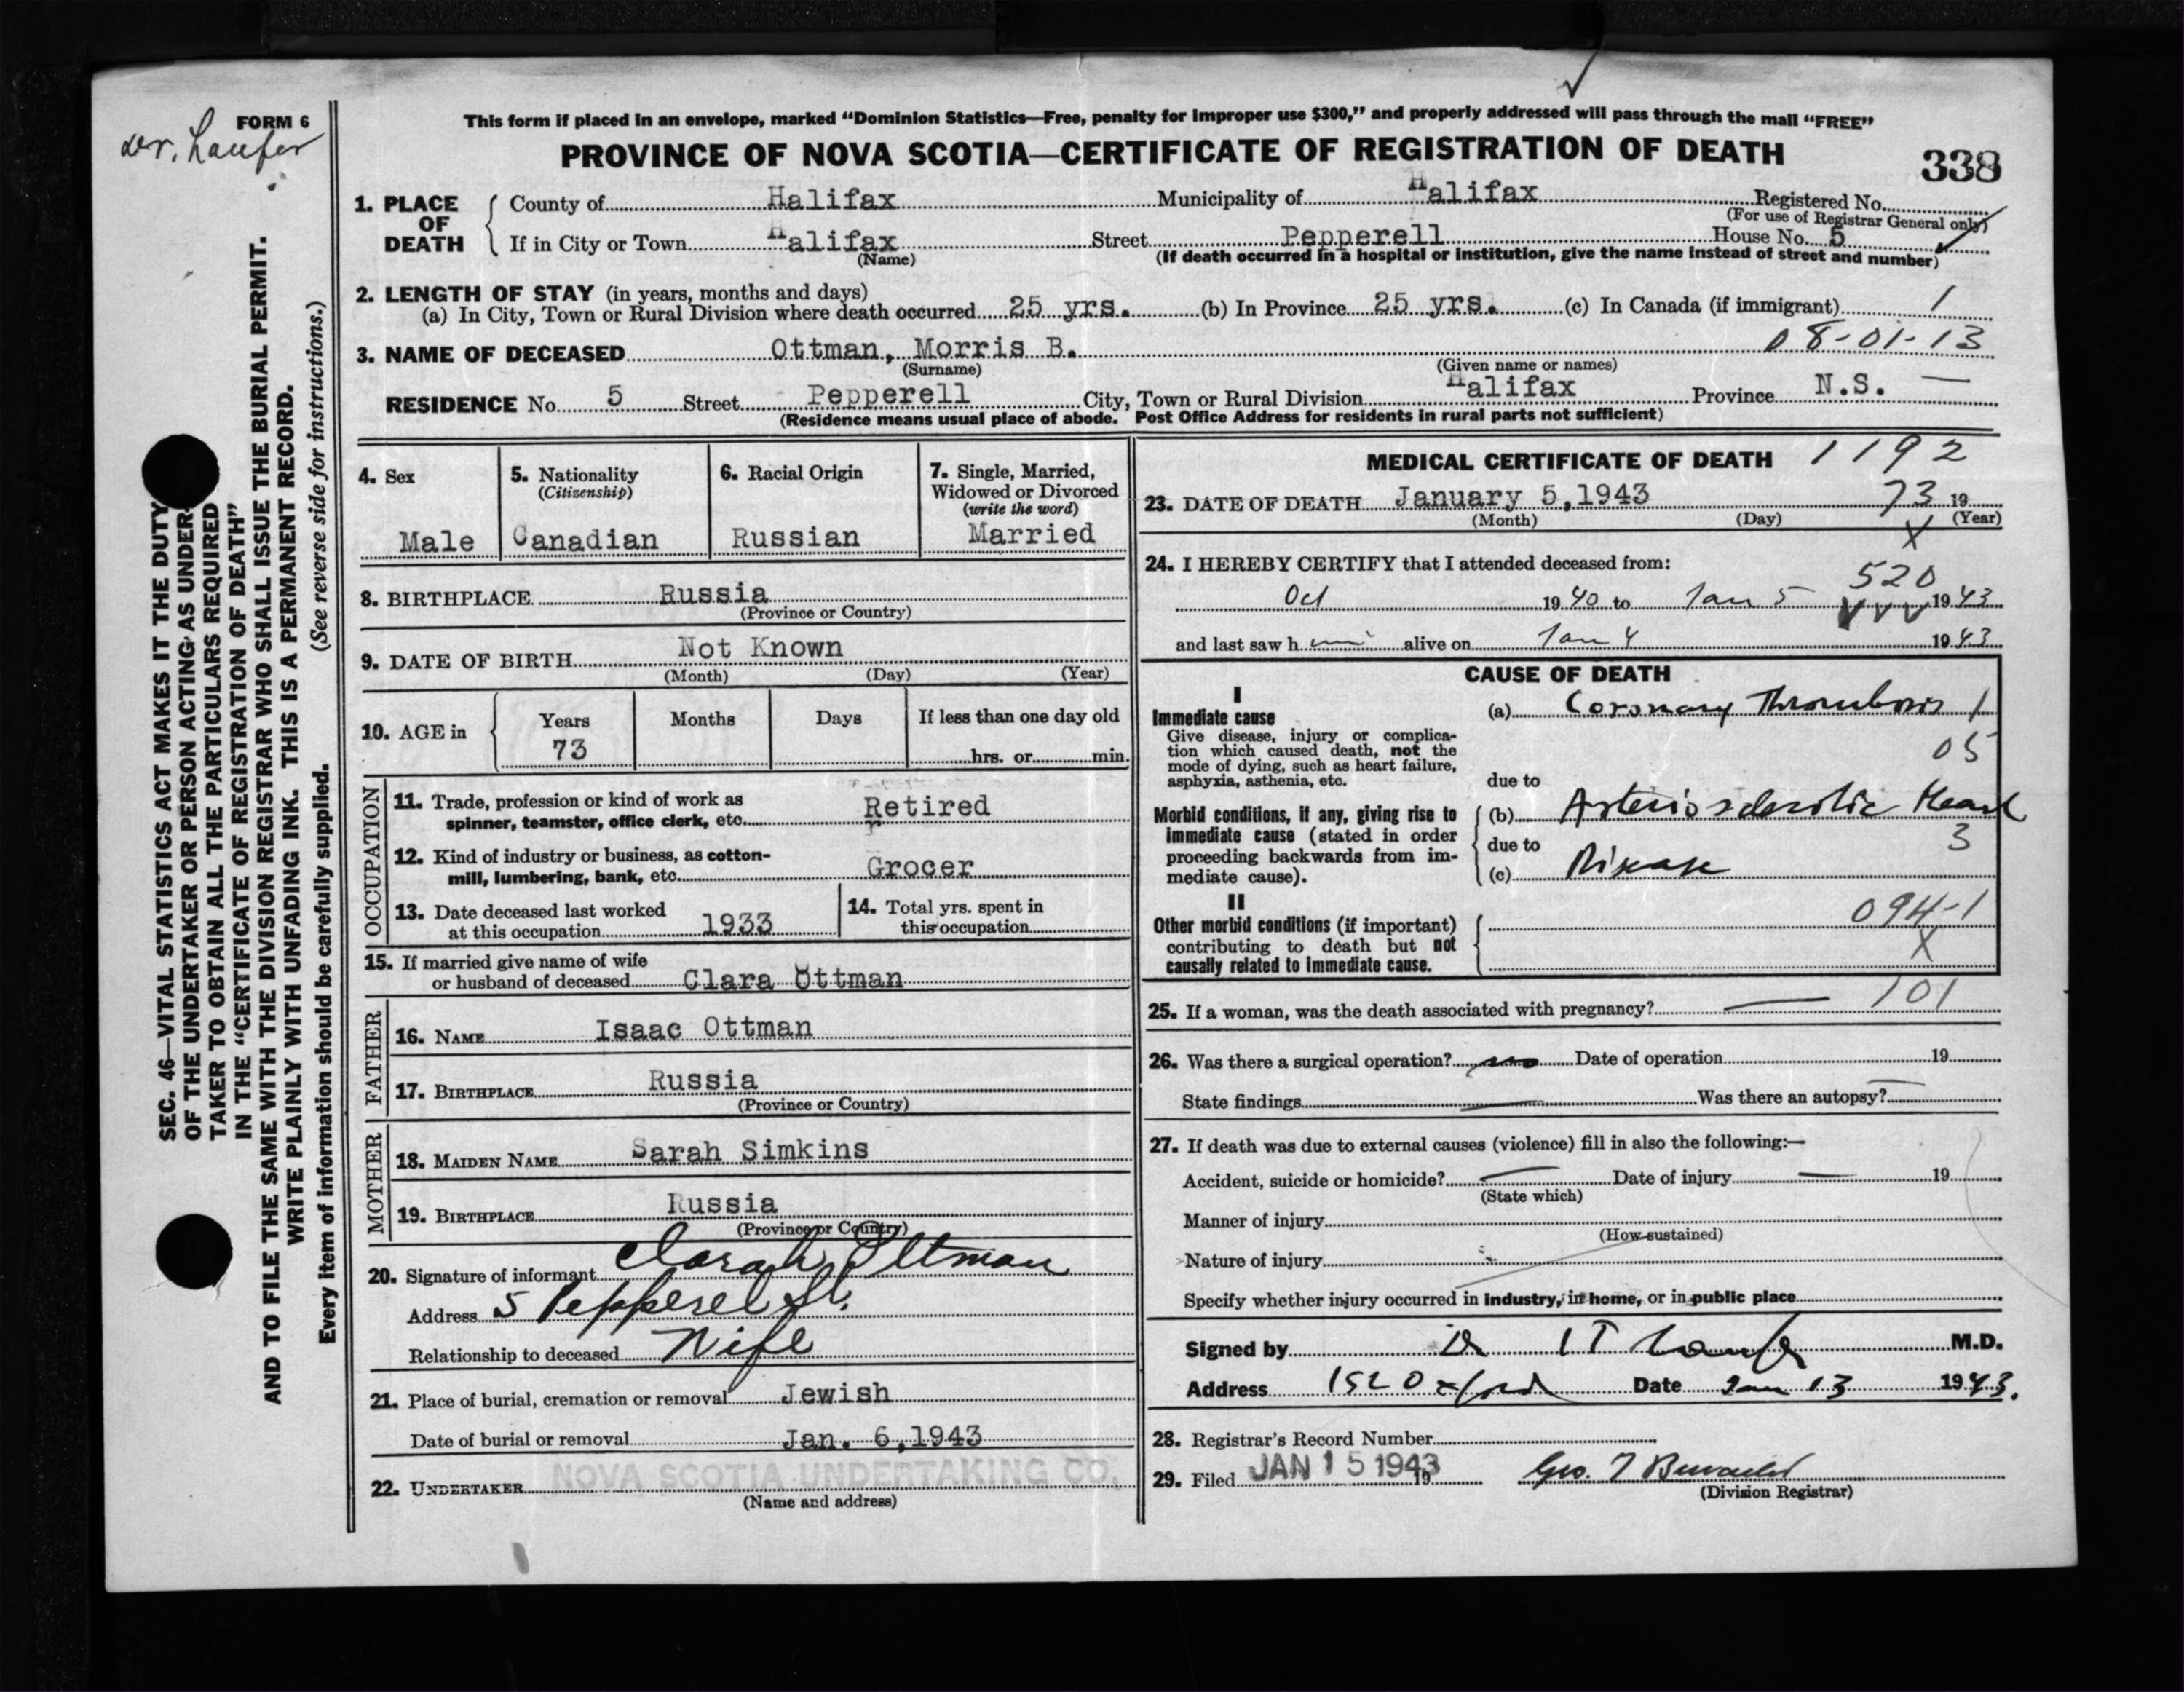 FORM 6
Dr. Laufer
This form if placed in an envelope, marked “Dominion Statistics—Free, penalty for improper use $300,” and properly addressed will pass through the mail “FREE”
PROVINCE OF NOVA SCOTIA—CERTIFICATE OF REGISTRATION OF DEATH
338
1. PLACE OF DEATH
County of Halifax Municipality of Halifax Registered No.
(For use of Registrar General only)
If in City or Town Halifax Street Pepperell House No. 5
(Name) (If death occurred in a hospital or institution, give the name instead of street and number)
2. LENGTH OF STAY (in years, months and days)
(a) In City, Town or Rural Division where death occurred 25 yrs. (b) In Province 25 yrs. (c) In Canada (if immigrant) 1
08-01-13
3. NAME OF DECEASED Ottman, Morris B.
(Surname) (Given name or names)
RESIDENCE No. 5 Street Pepperell City, Town or Rural Division Halifax Province N.S. —
(Residence means usual place of abode. Post Office Address for residents in rural parts not sufficient)
4. Sex
Male
5. Nationality
(Citizenship)
Canadian
6. Racial Origin
Russian
7. Single, Married,
Widowed or Divorced
(write the word)
Married
8. BIRTHPLACE Russia
(Province or Country)
9. DATE OF BIRTH Not Known
(Month) (Day) (Year)
10. AGE in
Years Months Days If less than one day old
73 hrs. or min.
OCCUPATION
11. Trade, profession or kind of work as
spinner, teamster, office clerk, etc. Retired
12. Kind of industry or business, as cotton-
mill, lumbering, bank, etc. Grocer
13. Date deceased last worked
at this occupation 1933
14. Total yrs. spent in
this occupation
15. If married give name of wife
or husband of deceased Clara Ottman
FATHER
16. NAME Isaac Ottman
17. BIRTHPLACE Russia
(Province or Country)
MOTHER
18. MAIDEN NAME Sarah Simkins
19. BIRTHPLACE Russia
(Province or Country)
20. Signature of informant Clarah Ottman
Address 5 Pepperel St.
Relationship to deceased Wife
21. Place of burial, cremation or removal Jewish
Date of burial or removal Jan. 6, 1943
22. UNDERTAKER NOVA SCOTIA UNDERTAKING CO.
(Name and address)
MEDICAL CERTIFICATE OF DEATH 1192
23. DATE OF DEATH January 5, 1943 73 19
(Month) (Day) (Year)
X
24. I HEREBY CERTIFY that I attended deceased from:
520
Oct 1940 to Jan 5 1943
and last saw h im alive on Jan 4 1943
CAUSE OF DEATH
I
Immediate cause
Give disease, injury or complica-
tion which caused death, not the
mode of dying, such as heart failure,
asphyxia, asthenia, etc.
(a) Coronary Thrombosis 1
05
due to
Morbid conditions, if any, giving rise to
immediate cause (stated in order
proceeding backwards from im-
mediate cause).
(b) Arteriosclerotic Heart
due to 3
(c) Disease
II
Other morbid conditions (if important)
contributing to death but not
causally related to immediate cause.
094-1
X
25. If a woman, was the death associated with pregnancy? — 101
26. Was there a surgical operation? no Date of operation 19
State findings — Was there an autopsy? —
27. If death was due to external causes (violence) fill in also the following:—
Accident, suicide or homicide? — Date of injury — 19
(State which)
Manner of injury
(How sustained)
Nature of injury
Specify whether injury occurred in industry, in home, or in public place
Signed by Dr I T Laufer M.D.
Address 152 Oxford Date Jan 13 1943.
28. Registrar's Record Number
29. Filed JAN 15 1943 19 Geo. T
(Division Registrar)
SEC. 46—VITAL STATISTICS ACT MAKES IT THE DUTY
OF THE UNDERTAKER OR PERSON ACTING AS UNDER-
TAKER TO OBTAIN ALL THE PARTICULARS REQUIRED
IN THE “CERTIFICATE OF REGISTRATION OF DEATH”
AND TO FILE THE SAME WITH THE DIVISION REGISTRAR WHO SHALL ISSUE THE BURIAL PERMIT.
WRITE PLAINLY WITH UNFADING INK. THIS IS A PERMANENT RECORD.
Every item of information should be carefully supplied. (See reverse side for instructions.)